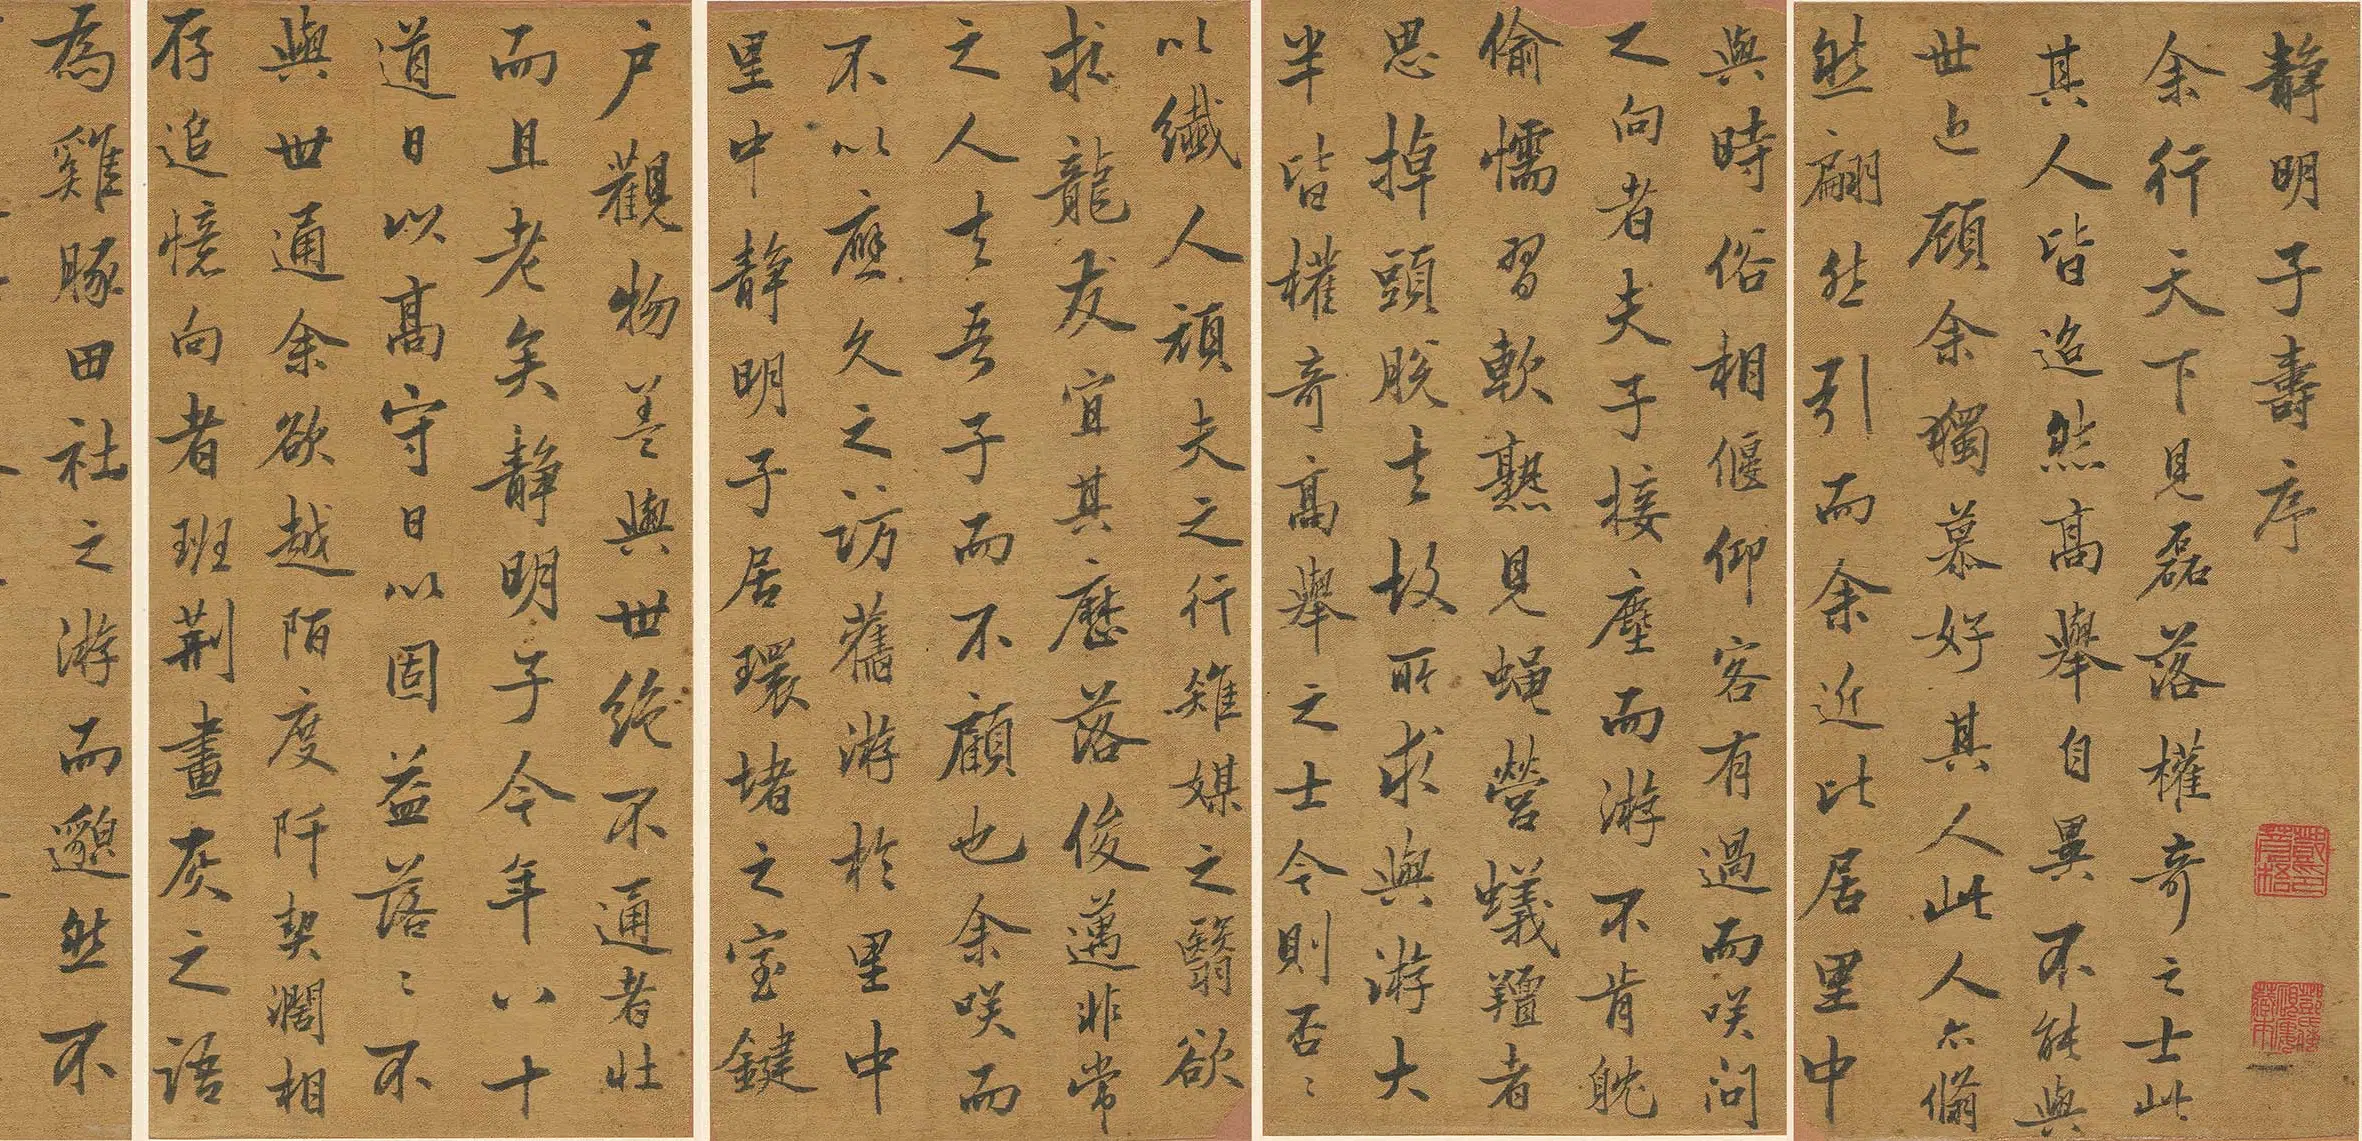 靜明子壽序
余行天下見磊落權奇之士此
其人皆迢然高舉自異不能與
世上顧余獨慕好其人此人亦翛
然翩然引而余近比居里中
與時俗相偃仰客有過而咲問
之向者夫子接塵而游不肯
偷懦習軟熟見蝇營蟻羶者
思掉頭脫去故所求與游大
半皆權奇高舉之士今則否〻
以纖人頑夫之行雉媒之翳欲
求龍友宜其歷落俊邁非常
之人去吾子而不顧也余咲而
不以應久之訪舊游於里中
里中靜明子居環堵之室鍵
户觀物蓋與世絶不通者壮
而且老矣靜明子今年八十
道日以高守日以固益落〻不
與世通余欲越陌度阡契濶相
存追憶向者班荆畫灰之語
為雞豚田社之游而邈然不